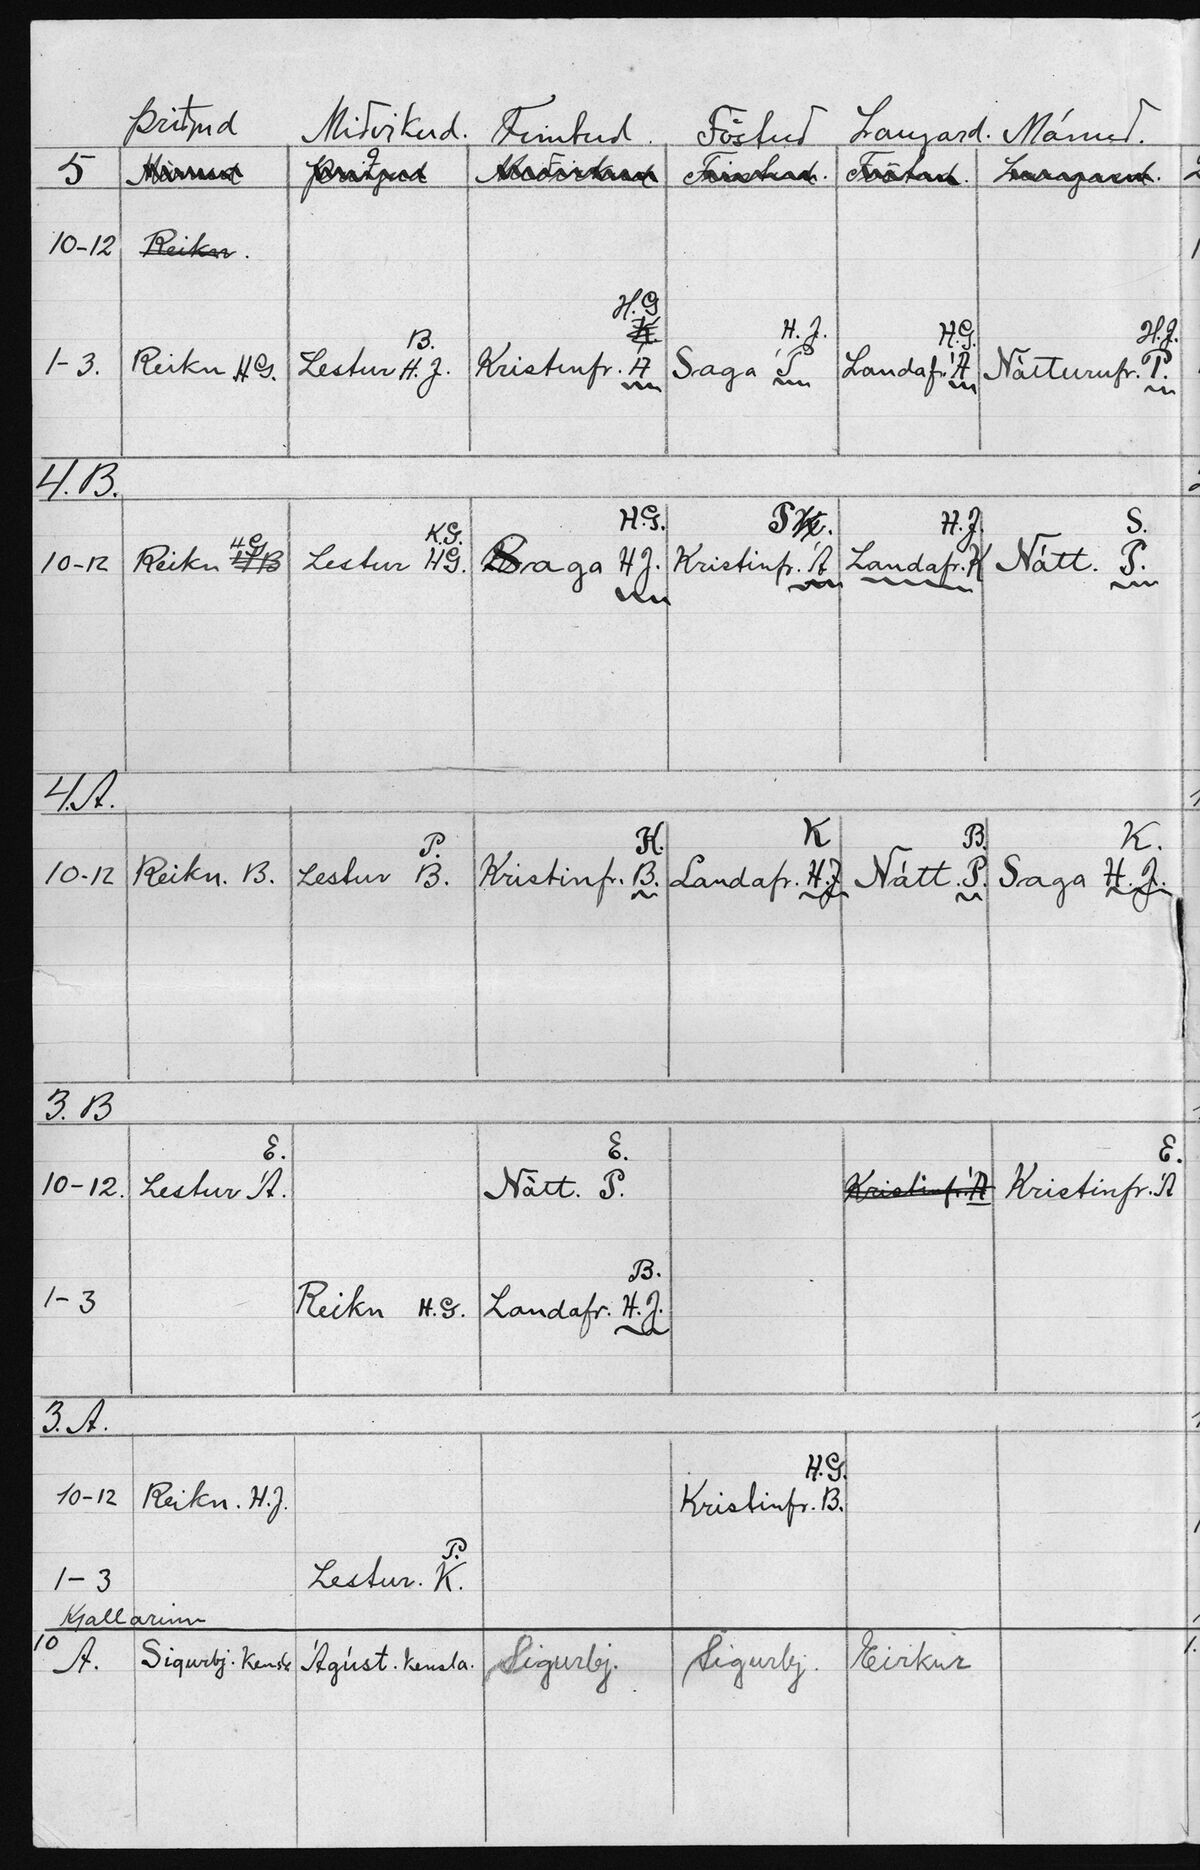 Þriðjud Miðvikud. Fimtud. Föstud Laugard. Mánud.
5 Mánud Þriðjud Miðvikud Fimtud. Föstud. Laugard.
10-12 Reikn.
H.G
B. K. H.J. H.G. H.J.
1-3. Reikn H.G. Lestur H.J. Kristinfr. Á Saga P Landafr. Á Nátturufr. P.
4.B.
H.G K.G. H.G. P K. H.J. S.
10-12 Reikn HB Lestur H.G. Saga H.J. Kristinfr. Á Landafr. K Nátt. P.
4.A.
P. K. K B. K.
10-12 Reikn. B. Lestur B. Kristinfr. B. Landafr. H.J Nátt. P. Saga H.J.
3.B
E. E. E.
10-12. Lestur Á. Nátt. P. Kristinfr. Á Kristinfr. Á
B.
1-3 Reikn H.G. Landafr. H.J.
3.A.
H.G.
10-12 Reikn. H.J. Kristinfr. B.
P.
1-3 Lestur. K.
Kjallarinn
10 A. Sigurbj. Kensla Ágúst. Kensla. Sigurbj. Sigurbj. Eirikur